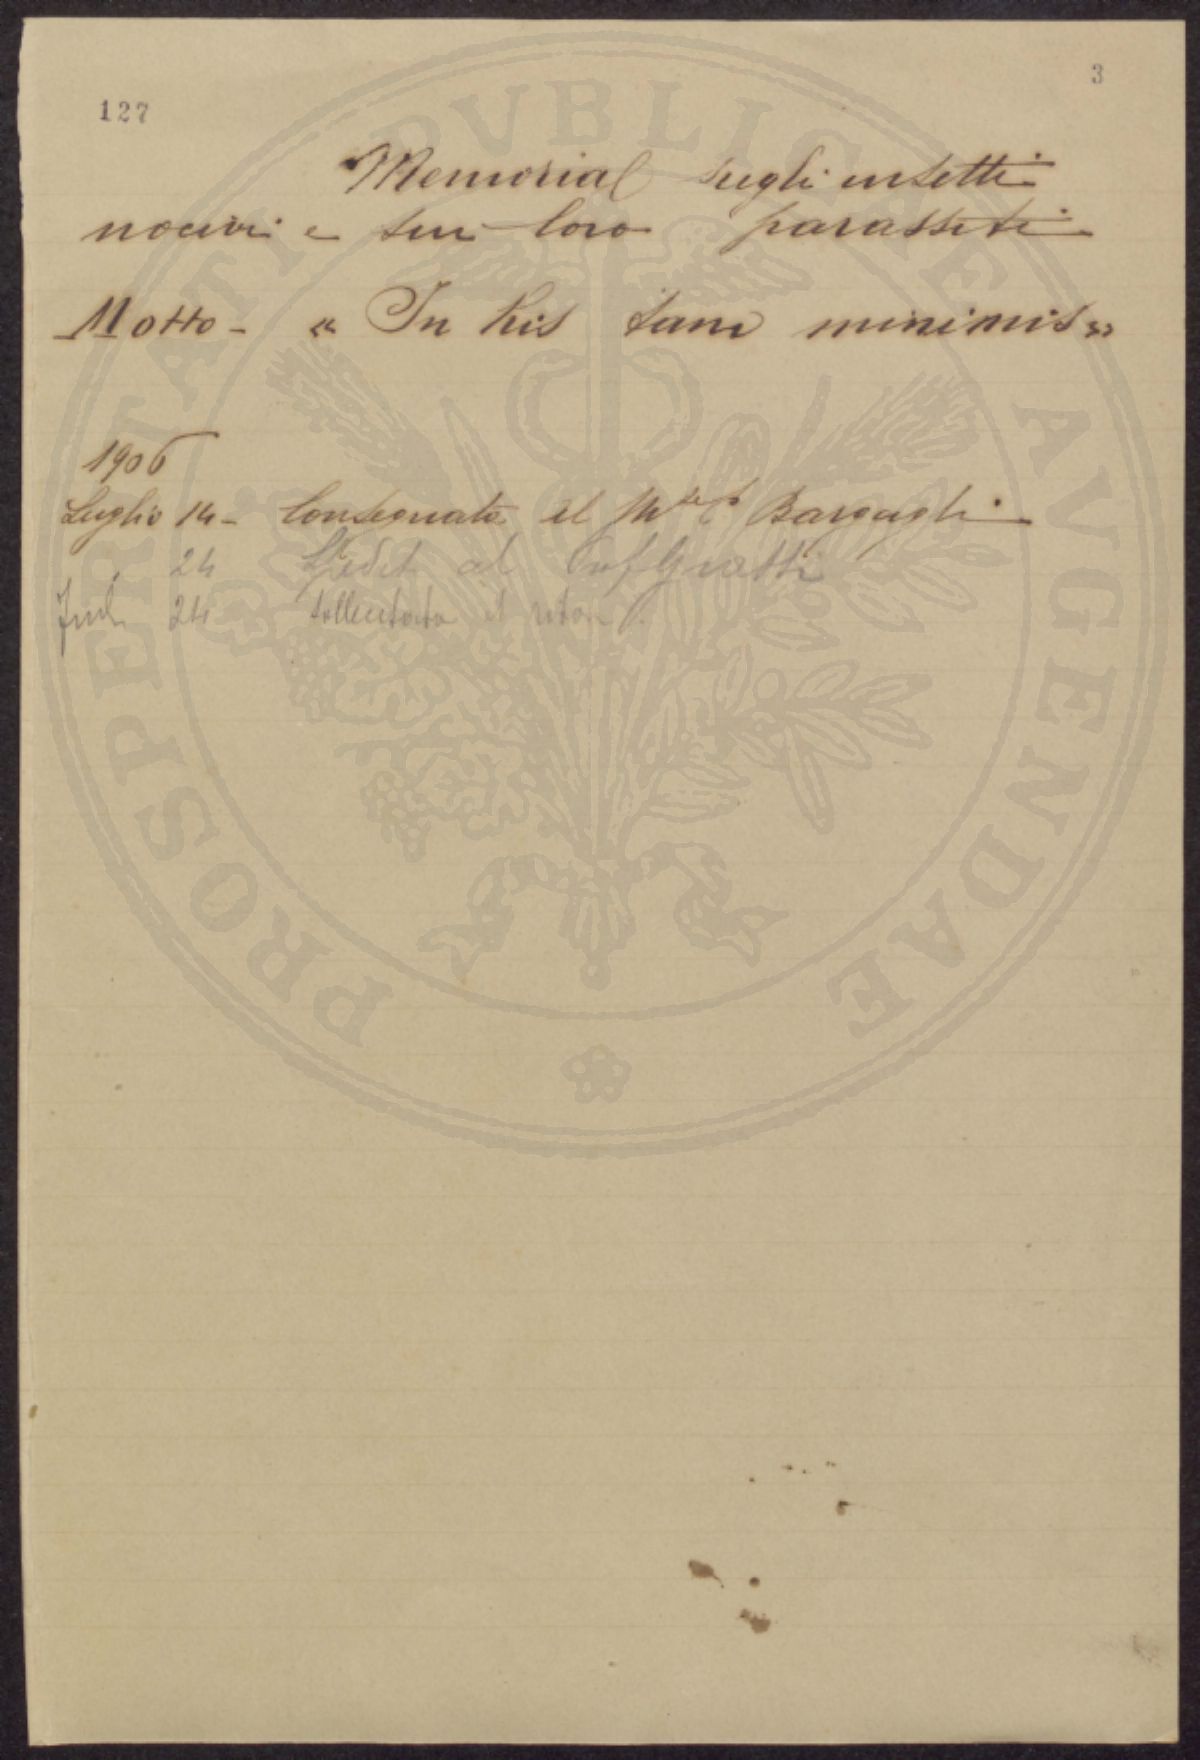 127
3
Memorial sugli insetti
nocivi e sui loro parassiti
Motto - « In his tam minimis »
1906
Luglio 14 - Consegnata al M.se P. Bargagli
24 Spedit al Prof Grassi
24 sollecitata il
PROSPERITATI PVBLICAE AVGENDAE